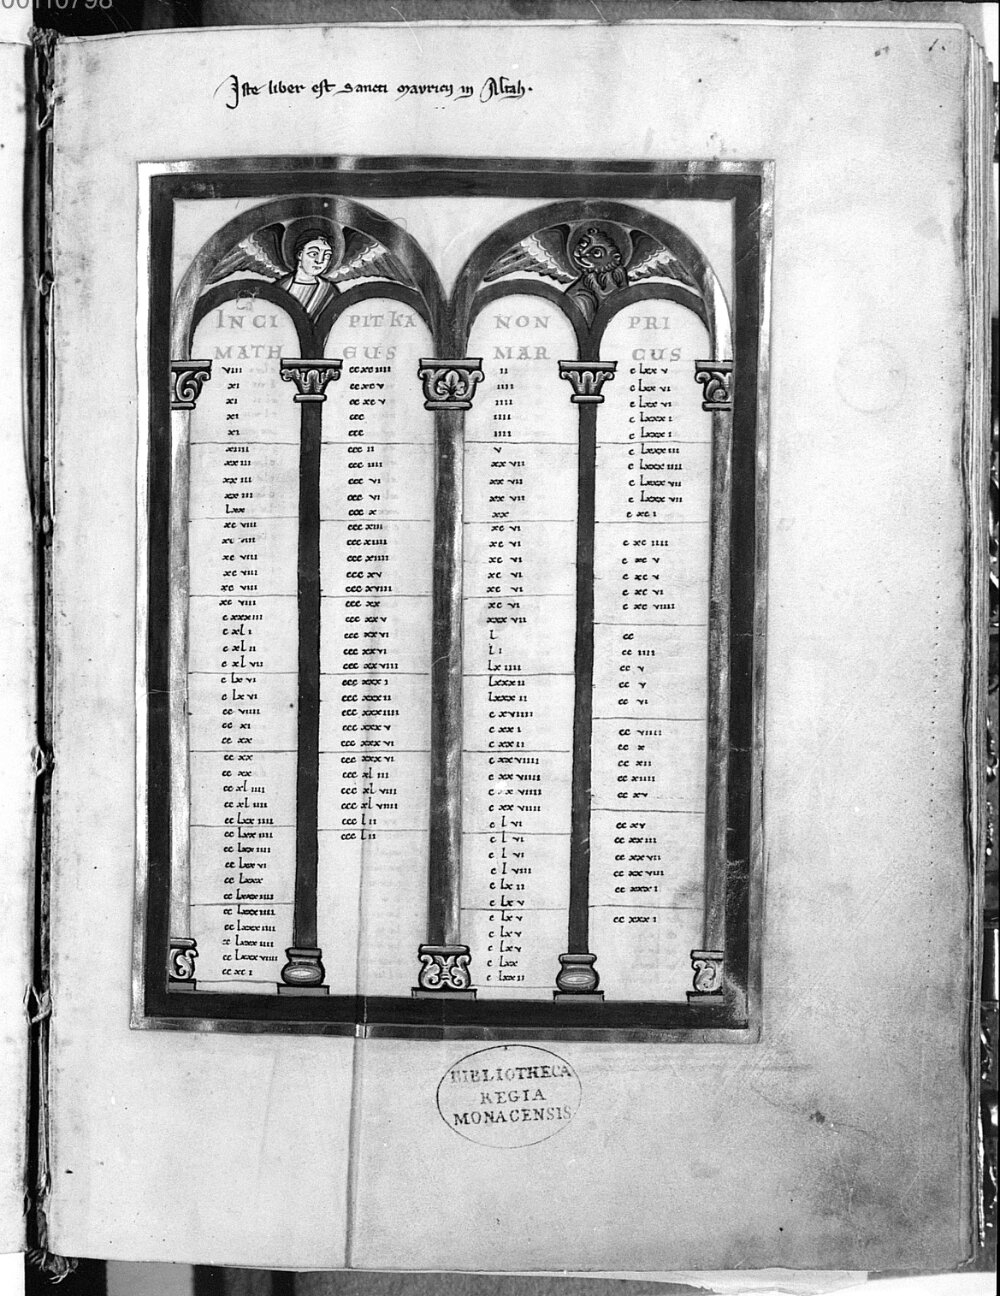 Iste liber est sancti mauricij in Altah.
1.
INCI PIT KA NON PRI
MATH EUS MAR CUS
viii
xi
xi
xi
xi
xiiii
xxiii
xxiii
xxiii
Lxx
xc viii
xc viii
xc viii
xc viii
xc viii
xc viii
c xxxiii
c xL i
c xL ii
c xL vii
c Lx vi
c Lx vi
cc viiii
cc xi
cc xx
cc xx
cc xx
cc xL iiii
cc xL iiii
cc Lxx iiii
cc Lxx iiii
cc Lxx iiii
cc Lxx vi
cc Lxxx
cc Lxxx iiii
cc Lxxx iiii
cc Lxxx iiii
cc Lxxx iiii
cc Lxxx viiii
cc xc i
cc xc iiii
cc xc v
cc xc v
ccc
ccc
ccc ii
ccc iiii
ccc vi
ccc vi
ccc x
ccc xiii
ccc xiiii
ccc xiiii
ccc xv
ccc xviii
ccc xx
ccc xx v
ccc xx vi
ccc xx vi
ccc xx viii
ccc xxx i
ccc xxx ii
ccc xxx iiii
ccc xxx v
ccc xxx vi
ccc xxx vi
ccc xL iii
ccc xL viii
ccc xL viiii
ccc L ii
ccc L ii
ii
iiii
iiii
iiii
iiii
v
xx vii
xx vii
xx vii
xx
xc vi
xc vi
xc vi
xc vi
xc vi
xc vi
xxx vii
L
L i
Lx iiii
Lxxx ii
Lxxx ii
c xviiii
c xx i
c xx ii
c xx viiii
c xx viiii
c xx viiii
c xx viiii
c L vi
c L vi
c L vi
c L viii
c Lx ii
c Lx v
c Lx v
c Lx v
c Lx v
c Lxx
c Lxx ii
c Lxx v
c Lxx vi
c Lxx vi
c Lxxx i
c Lxxx i
c Lxxx iii
c Lxxx iiii
c Lxxx vii
c Lxxx vii
c xc i
c xc iiii
c xc v
c xc v
c xc vi
c xc viiii
cc
cc iiii
cc v
cc v
cc vi
cc viiii
cc x
cc xii
cc xiiii
cc xv
cc xv
cc xx iii
cc xx vii
cc xx viii
cc xxx i
cc xxx i
BIBLIOTHECA
REGIA
MONACENSIS